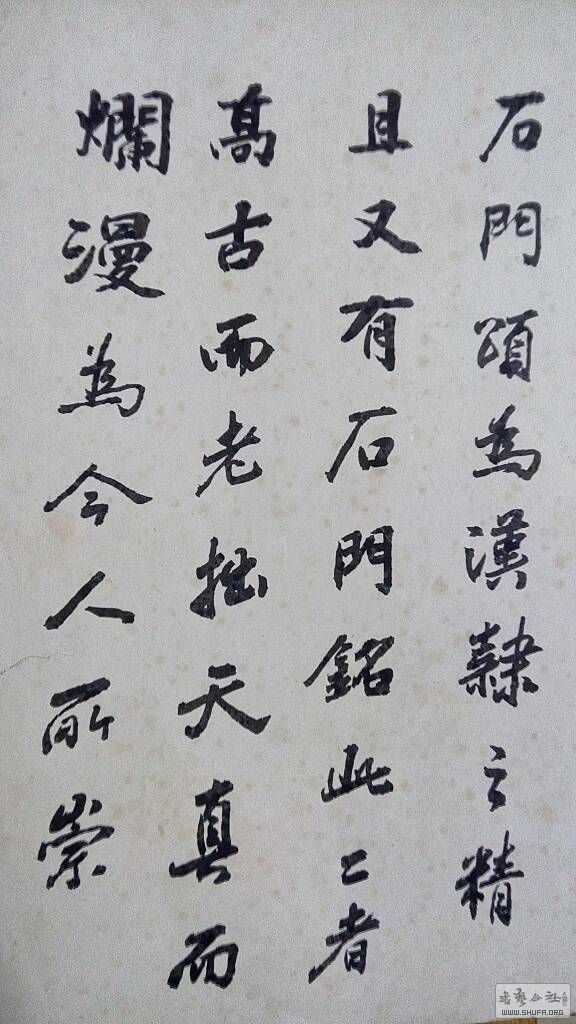 石門頌為漢隸之精
且又有石門銘此二者
高古而老拙天真而
爛漫為今人所崇
书艺公社
WWW.SHUFA.ORG